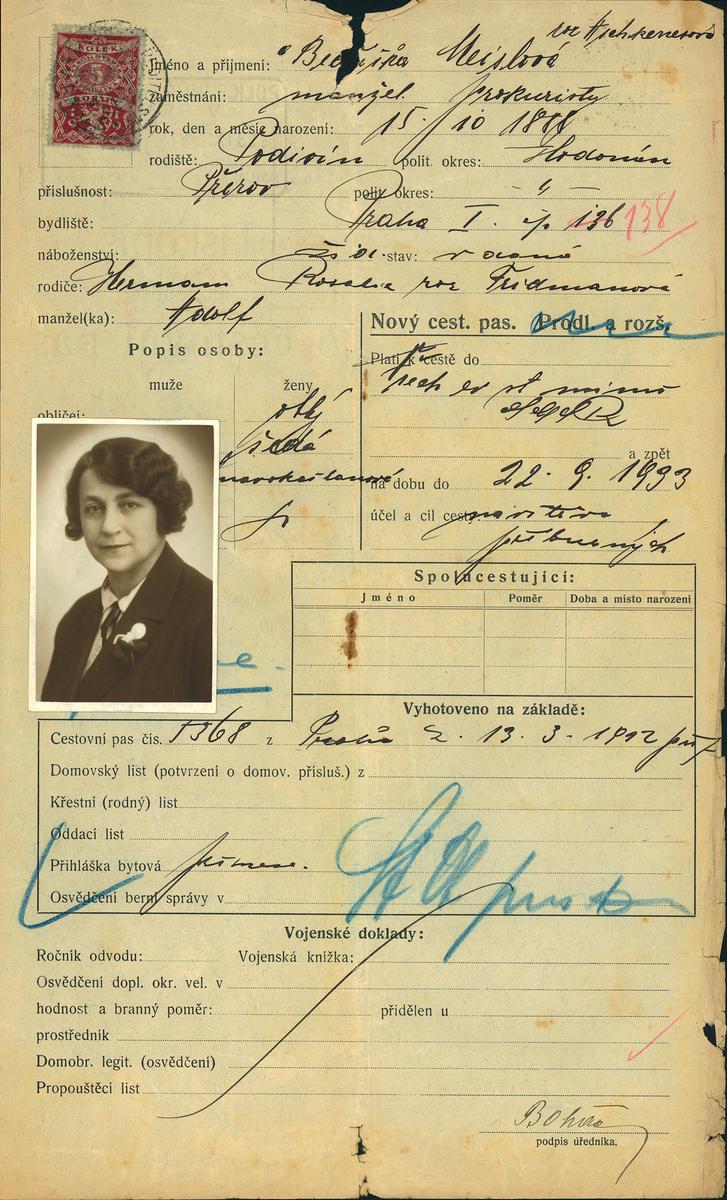 roz Aschkenesová
KOLEK
5
KORUN
Jméno a příjmení: Meislová
zaměstnání: manžel. prokuristy
rok, den a měsíc narození: 15/10 1888
rodiště: Podivín polit. okres: Hodonín
příslušnost: Přerov polit. okres: - " -
bydliště: Praha I. čp 136 138
náboženství: stav: vdaná
rodiče: Hermann Rosalie roz Fridmanová
manžel(ka): Adolf
Nový cest. pas. Prodl. a rozš.
Popis osoby:
Platí k cestě do
muže ženy
všech ev. st mimo
obličej: oblý
SSSR
šedá
a zpět
tmavokaštanové
na dobu do 22. 9. 1933
účel a cíl cesty: návštěva
příbuzných
Spolucestující:
Jméno Poměr Doba a místo narození
Vyhotoveno na základě:
Cestovní pas čís. 1368 z Praha 13. 3.
Domovský list (potvrzení o domov. přísluš.) z
Křestní (rodný) list
Oddací list
Přihláška bytová
Osvědčení berní správy v
Vojenské doklady:
Ročník odvodu: Vojenská knížka:
Osvědčení dopl. okr. vel. v
hodnost a branný poměr: přidělen u
prostředník
Domobr. legit. (osvědčení)
Propouštěcí list
podpis úředníka.